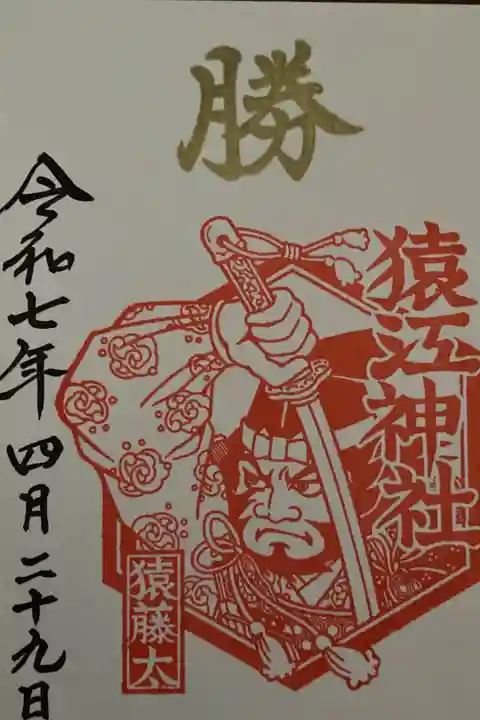 勝
猿江神社
猿藤太
令和七年四月二十九日